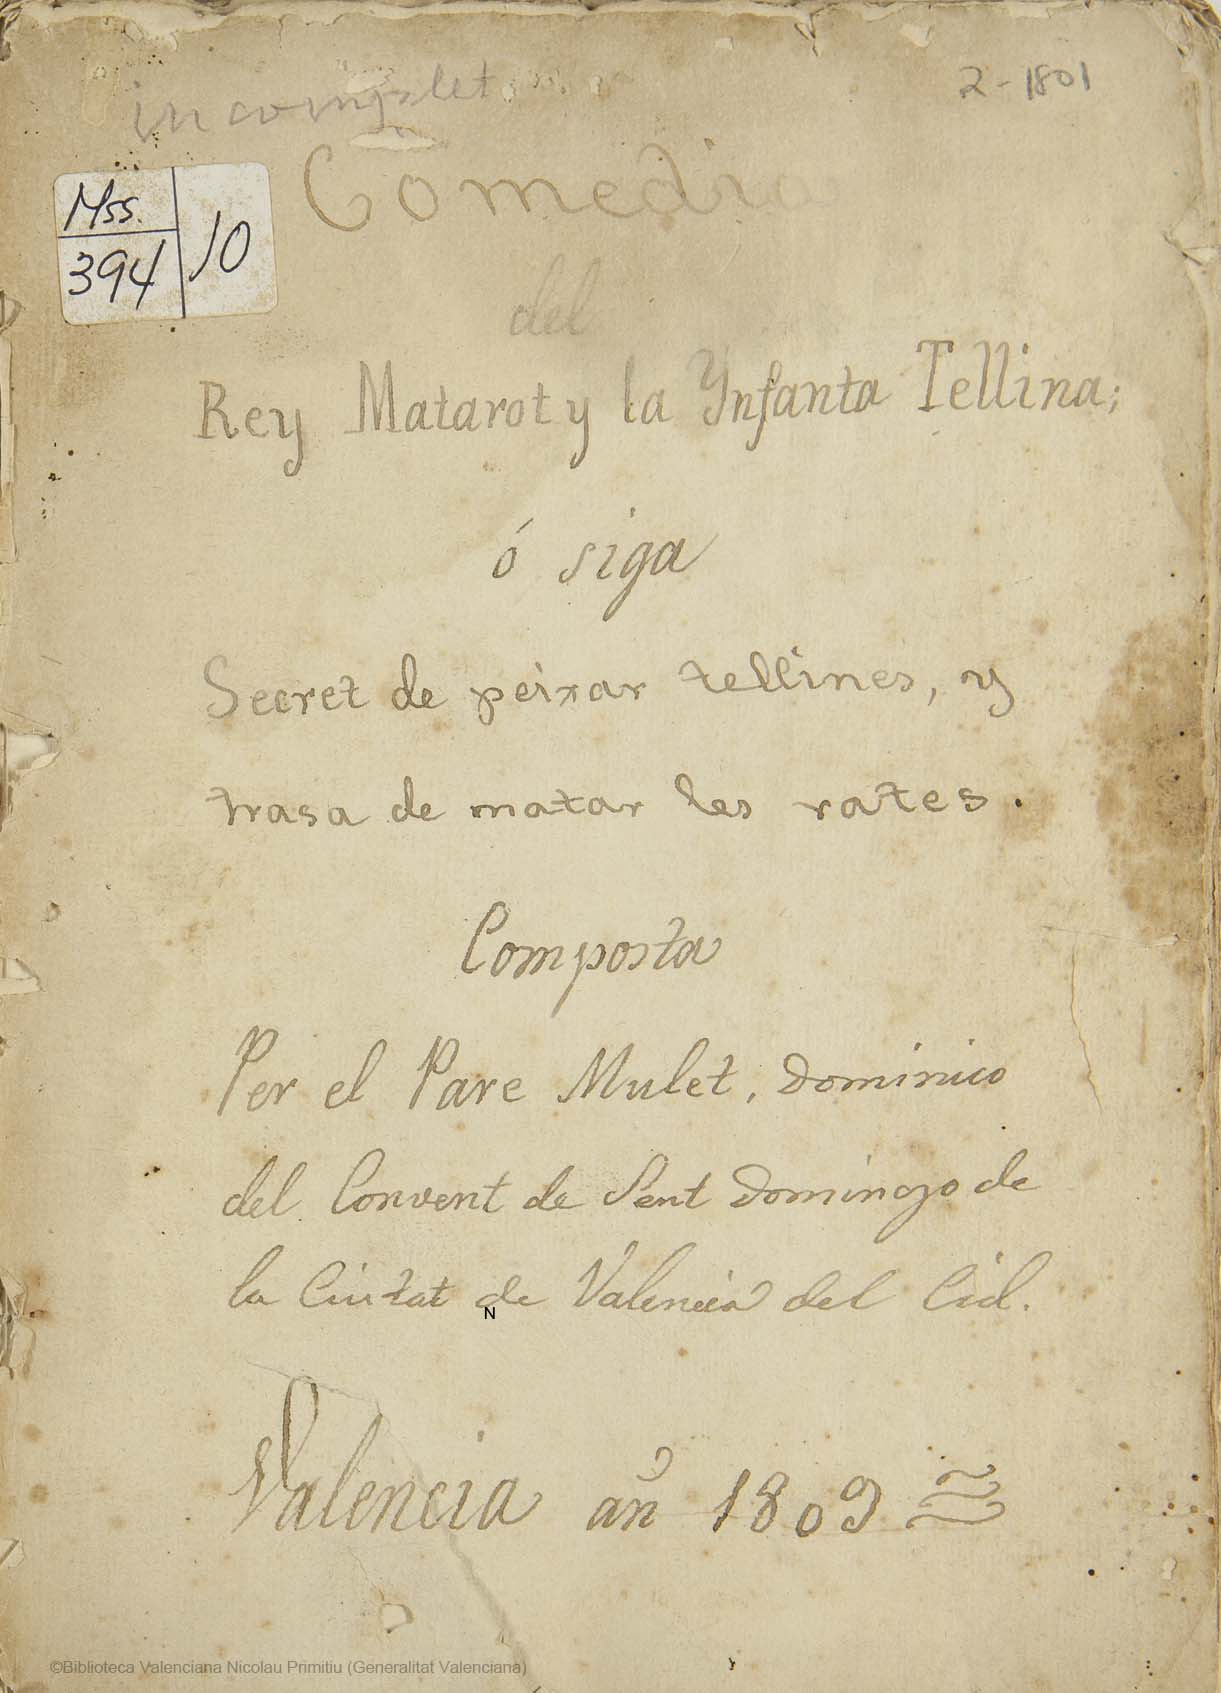 incomplet
2-1801
Mss. 394 10
Comedia
del
Rey Matarot y la Ynfanta Tellina;
ó siga
Secret de peixar tellines, y
trasa de matar les rates.
Composta
Per el Pare Mulet, dominico
del Convent de Sent Domingo de
la Ciutat de Valencia del Cid.
N
Valencia añ 1809
©Biblioteca Valenciana Nicolau Primitiu (Generalitat Valenciana)